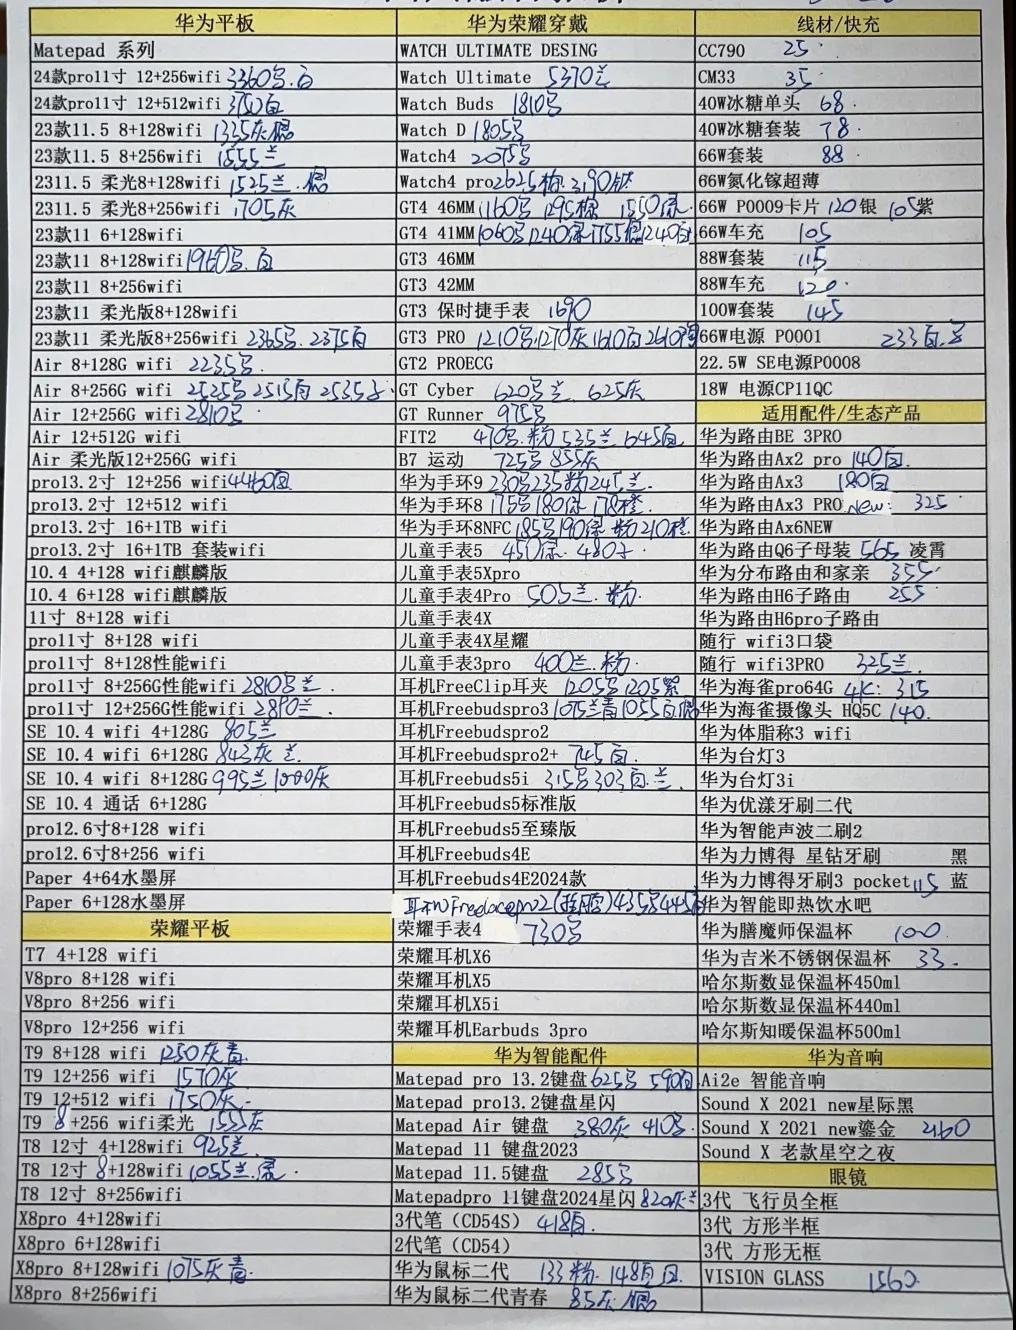 华为平板
Matepad 系列
24款pro11寸 12+256wifi 3360
24款pro11寸 12+512wifi
23款11.5 8+128wifi 1335灰
23款11.5 8+256wifi 1555兰
2311.5 柔光8+128wifi 1525兰
2311.5 柔光8+256wifi 1705灰
23款11 6+128wifi
23款11 8+128wifi 1960
23款11 8+256wifi
23款11 柔光版8+128wifi
23款11 柔光版8+256wifi 2365 2375
Air 8+128G wifi 2235
Air 8+256G wifi 2525 2515 2535
Air 12+256G wifi 2810
Air 12+512G wifi
Air 柔光版12+256G wifi
pro13.2寸 12+256 wifi 4460
pro13.2寸 12+512 wifi
pro13.2寸 16+1TB wifi
pro13.2寸 16+1TB 套装wifi
10.4 4+128 wifi麒麟版
10.4 6+128 wifi麒麟版
11寸 8+128 wifi
pro11寸 8+128 wifi
pro11寸 8+128性能wifi
pro11寸 8+256G性能wifi 2810 兰
pro11寸 12+256G性能wifi 兰
SE 10.4 wifi 4+128G 805兰
SE 10.4 wifi 6+128G 843灰 兰
SE 10.4 wifi 8+128G 995兰 1000灰
SE 10.4 通话 6+128G
pro12.6寸8+128 wifi
pro12.6寸8+256 wifi
Paper 4+64水墨屏
Paper 6+128水墨屏
荣耀平板
T7 4+128 wifi
V8pro 8+128 wifi
V8pro 8+256 wifi
V8pro 12+256 wifi
T9 8+128 wifi 1250灰 青
T9 12+256 wifi 1570灰
T9 12+512 wifi 1750灰
T9 8+256 wifi柔光 1555灰
T8 12寸 4+128wifi 925兰
T8 12寸 8+128wifi 1055兰
T8 12寸 8+256wifi
X8pro 4+128wifi
X8pro 6+128wifi
X8pro 8+128wifi 1075灰 青
X8pro 8+256wifi
华为荣耀穿戴
WATCH ULTIMATE DESING
Watch Ultimate 5370兰
Watch Buds 1810
Watch D 1805
Watch4 2075
Watch4 pro 2625 3190
GT4 46MM 1160 1295 1550
GT4 41MM 1060 1240 1755 1240
GT3 46MM
GT3 42MM
GT3 保时捷手表 1690
GT3 PRO 1210 1270灰 1610 2610
GT2 PROECG
GT Cyber 620 兰 625灰
GT Runner 975
FIT2 470 粉 535兰 645
B7 运动 725 855灰
华为手环9 230 235粉 245兰
华为手环8 175 180 178橙
华为手环8NFC 185 190 粉 210橙
儿童手表5 450 480
儿童手表5Xpro
儿童手表4Pro 505兰 粉
儿童手表4X
儿童手表4X星耀
儿童手表3pro 400兰 粉
耳机FreeClip耳夹 1205 1205紫
耳机Freebudspro3 1075兰青 1055
耳机Freebudspro2
耳机Freebudspro2+ 745
耳机Freebuds5i 315 303 兰
耳机Freebuds5标准版
耳机Freebuds5至臻版
耳机Freebuds4E
耳机Freebuds4E2024款
耳机Freelacepro2 435 445
荣耀手表4 730
荣耀耳机X6
荣耀耳机X5
荣耀耳机X5i
荣耀耳机Earbuds 3pro
华为智能配件
Matepad pro 13.2键盘 625 590
Matepad pro13.2键盘星闪
Matepad Air 键盘 380灰 410
Matepad 11 键盘2023
Matepad 11.5键盘 285
Matepadpro 11键盘2024星闪 820灰兰
3代笔（CD54S） 418
2代笔（CD54）
华为鼠标二代 133粉 148
华为鼠标二代青春 85灰
线材/快充
CC790 25
CM33 35
40W冰糖单头 68
40W冰糖套装 78
66W套装 88
66W氮化镓超薄
66W P0009卡片 120银 105紫
66W车充 105
88W套装 115
88W车充 120
100W套装 145
66W电源 P0001 233
22.5W SE电源P0008
18W 电源CP11QC
适用配件/生态产品
华为路由BE 3PRO
华为路由Ax2 pro 140
华为路由Ax3 180
华为路由Ax3 PRO New: 325
华为路由Ax6NEW
华为路由Q6子母装 565 凌霄
华为分布路由和家亲 355
华为路由H6子路由 255
华为路由H6pro子路由
随行 wifi3口袋
随行 wifi3PRO 325兰
华为海雀pro64G 4K: 315
华为海雀摄像头 HQ5C 140
华为体脂称3 wifi
华为台灯3
华为台灯3i
华为优漾牙刷二代
华为智能声波二刷2
华为力博得 星钻牙刷 黑
华为力博得牙刷3 pocket 115 蓝
华为智能即热饮水吧
华为膳魔师保温杯 100
华为吉米不锈钢保温杯 33
哈尔斯数显保温杯450ml
哈尔斯数显保温杯440ml
哈尔斯知暖保温杯500ml
华为音响
Ai2e 智能音响
Sound X 2021 new星际黑
Sound X 2021 new鎏金 2160
Sound X 老款星空之夜
眼镜
3代 飞行员全框
3代 方形半框
3代 方形无框
VISION GLASS 1560